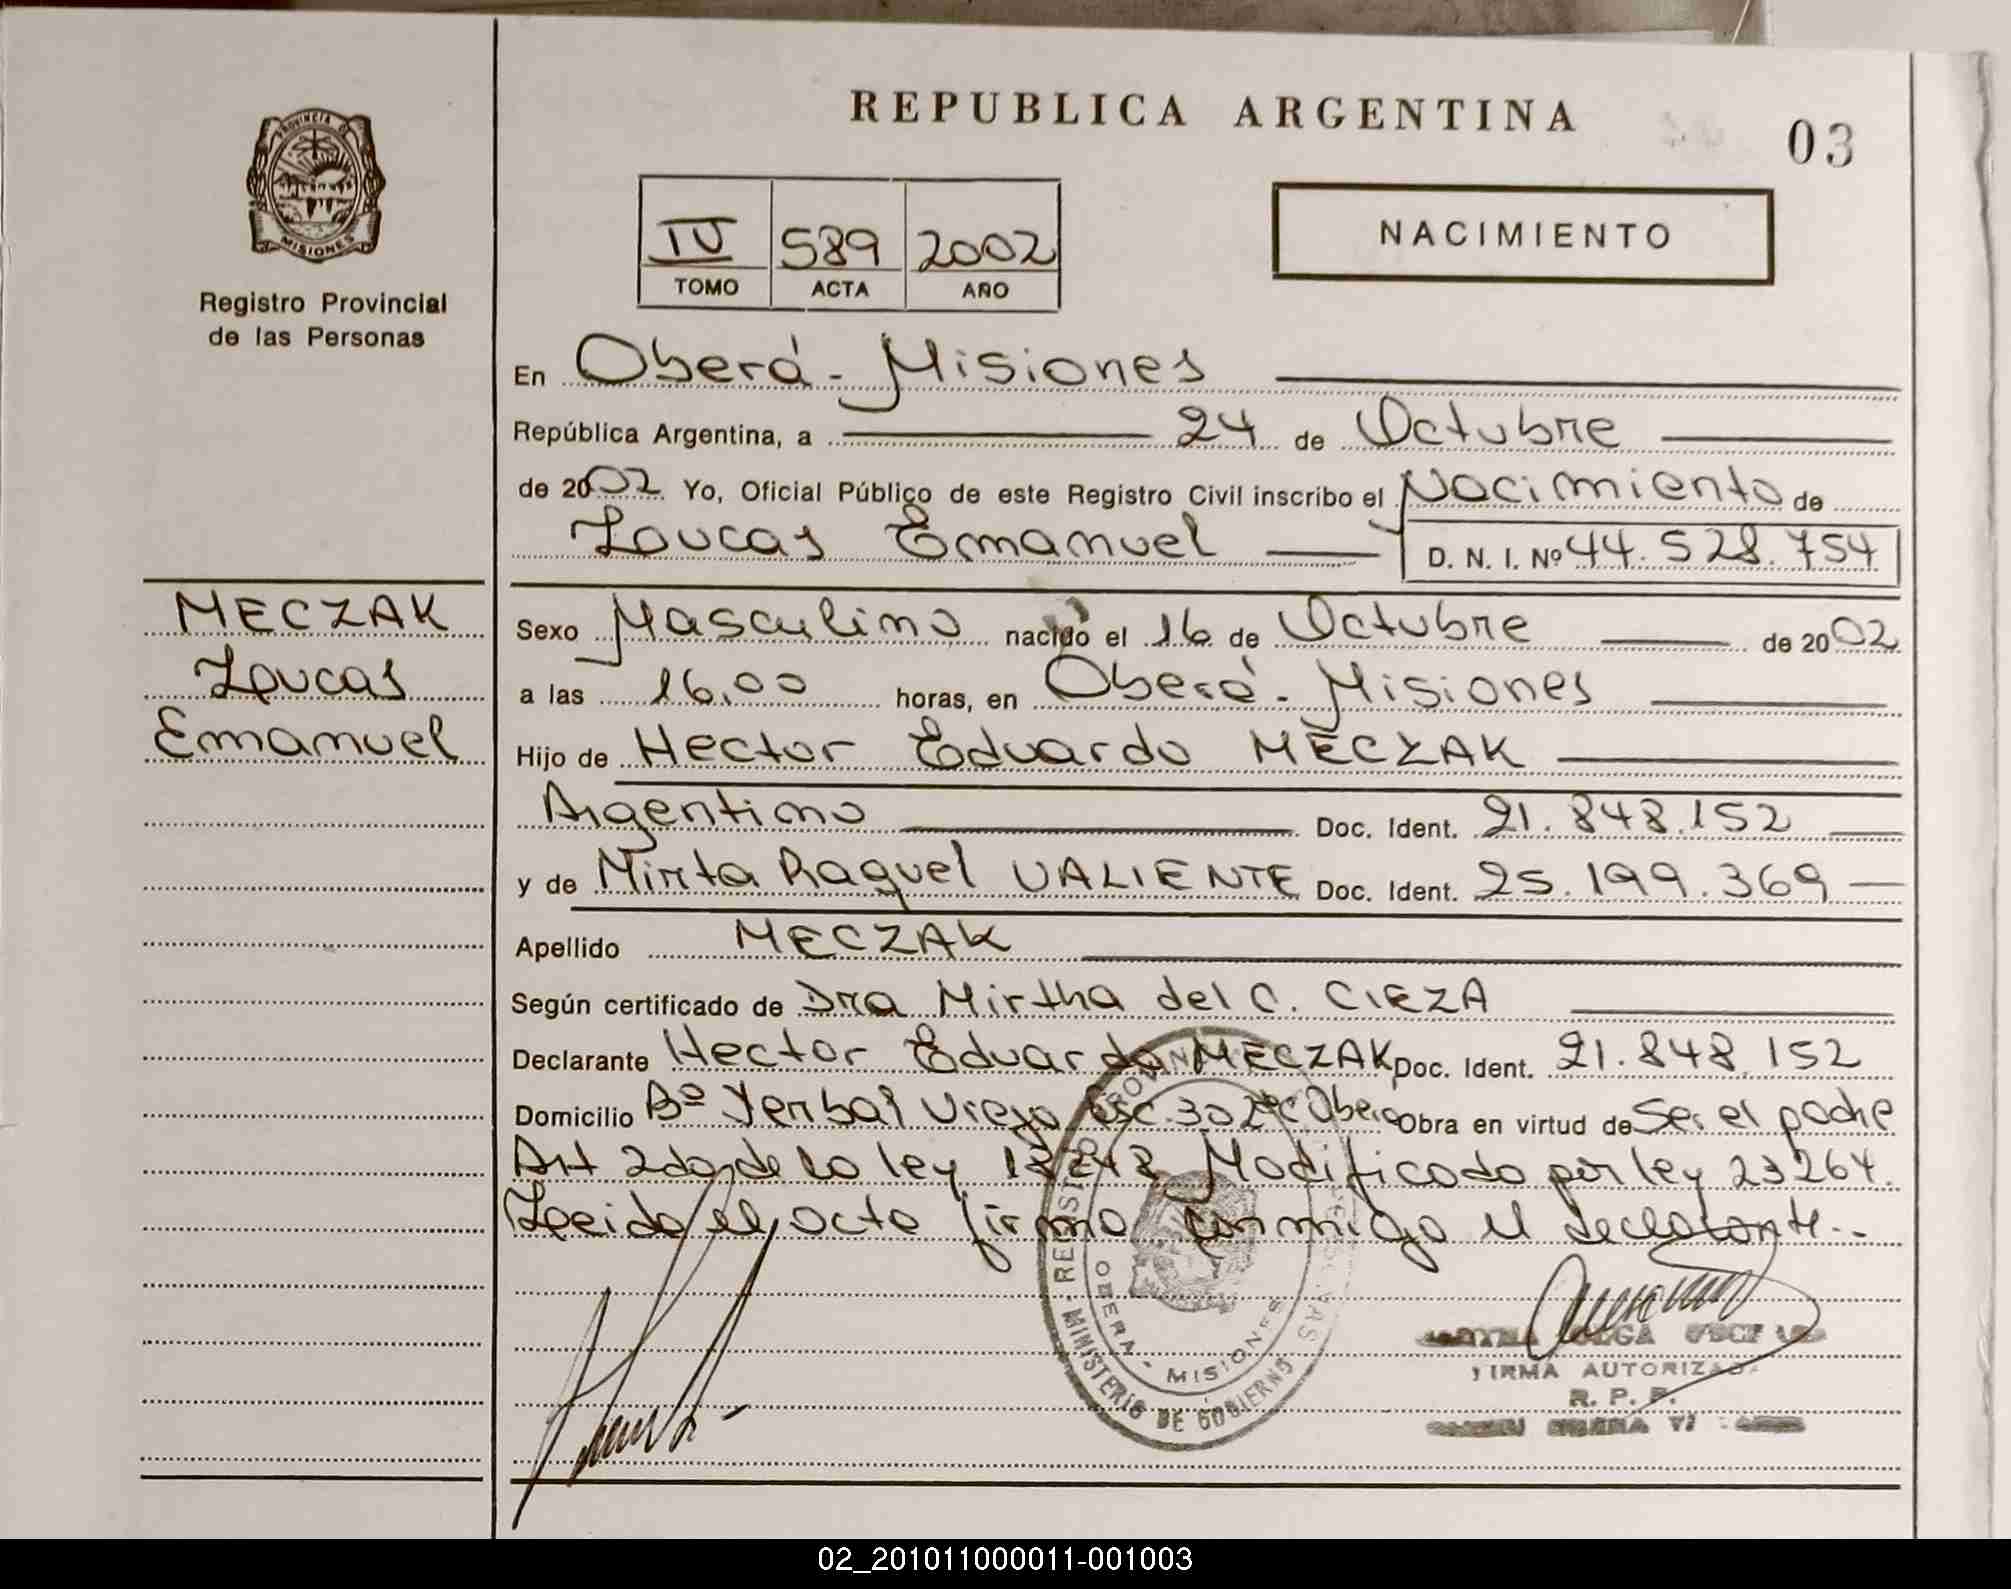 REPUBLICA ARGENTINA
03
PROVINCIA DE
MISIONES
Registro Provincial
de las Personas
IV 589 2002
TOMO ACTA AÑO
NACIMIENTO
En Oberá - Misiones
República Argentina, a 24 de Octubre
de 2002 Yo, Oficial Público de este Registro Civil inscribo el Nacimiento de
Loucas Emanuel D. N. I. Nº 44.528.754
MECZAK
Loucas
Emanuel
Sexo Masculino nacido el 16 de Octubre de 2002
a las 16,00 horas, en Oberá - Misiones
Hijo de Hector Eduardo MECZAK
Argentino Doc. Ident. 21.848.152
y de Mirta Raquel VALIENTE Doc. Ident. 25.199.369
Apellido MECZAK
Según certificado de Dra Mirtha del C. CIEZA
Declarante Hector Eduardo MECZAK Doc. Ident. 21.848.152
Domicilio Bº Yerbal Viejo Esc. 302 Obera Obra en virtud de Ser el padre
Art 2do de la ley Modificado por ley 23264.
Leida el acta firma conmigo el declarante.-
OBERA - MISIONES
MINISTERIO DE GOBIERNO
FIRMA AUTORIZADA
R. P. P.
02_201011000011-001003